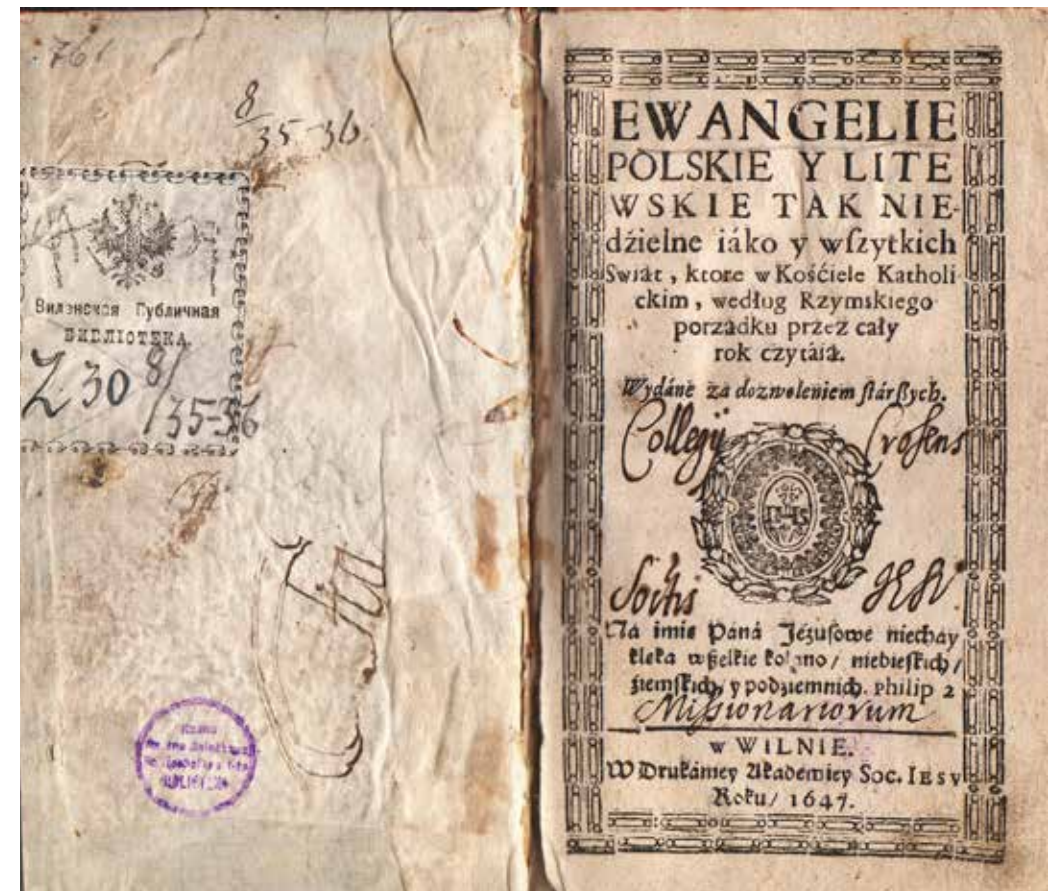 761
8
35-36.
Виленская Публичная
БИБЛІОТЕКА.
Z 30 8/
35-36
EWANGELIE
POLSKIE Y LITE
WSKIE TAK NIE-
dźielne iáko y wſzytkich
Swiąt, ktore w Kośćiele Katholi
ckim, według Rzymskiego
porządku przez cáły
rok czytáią.
Wydáne zá dozwoleniem ſtárßych.
Collegij Crosens
IHS
Soctis JESV.
Na imię Páná Jezuſowe niechay
klęka wßelkie koláno/ niebieſkich/
źiemſkich, y podźiemnich. Philip 2
Missionariorum
w WILNIE.
W Drukárniey Akádemiey Soc. IESV
Roku/ 1647.